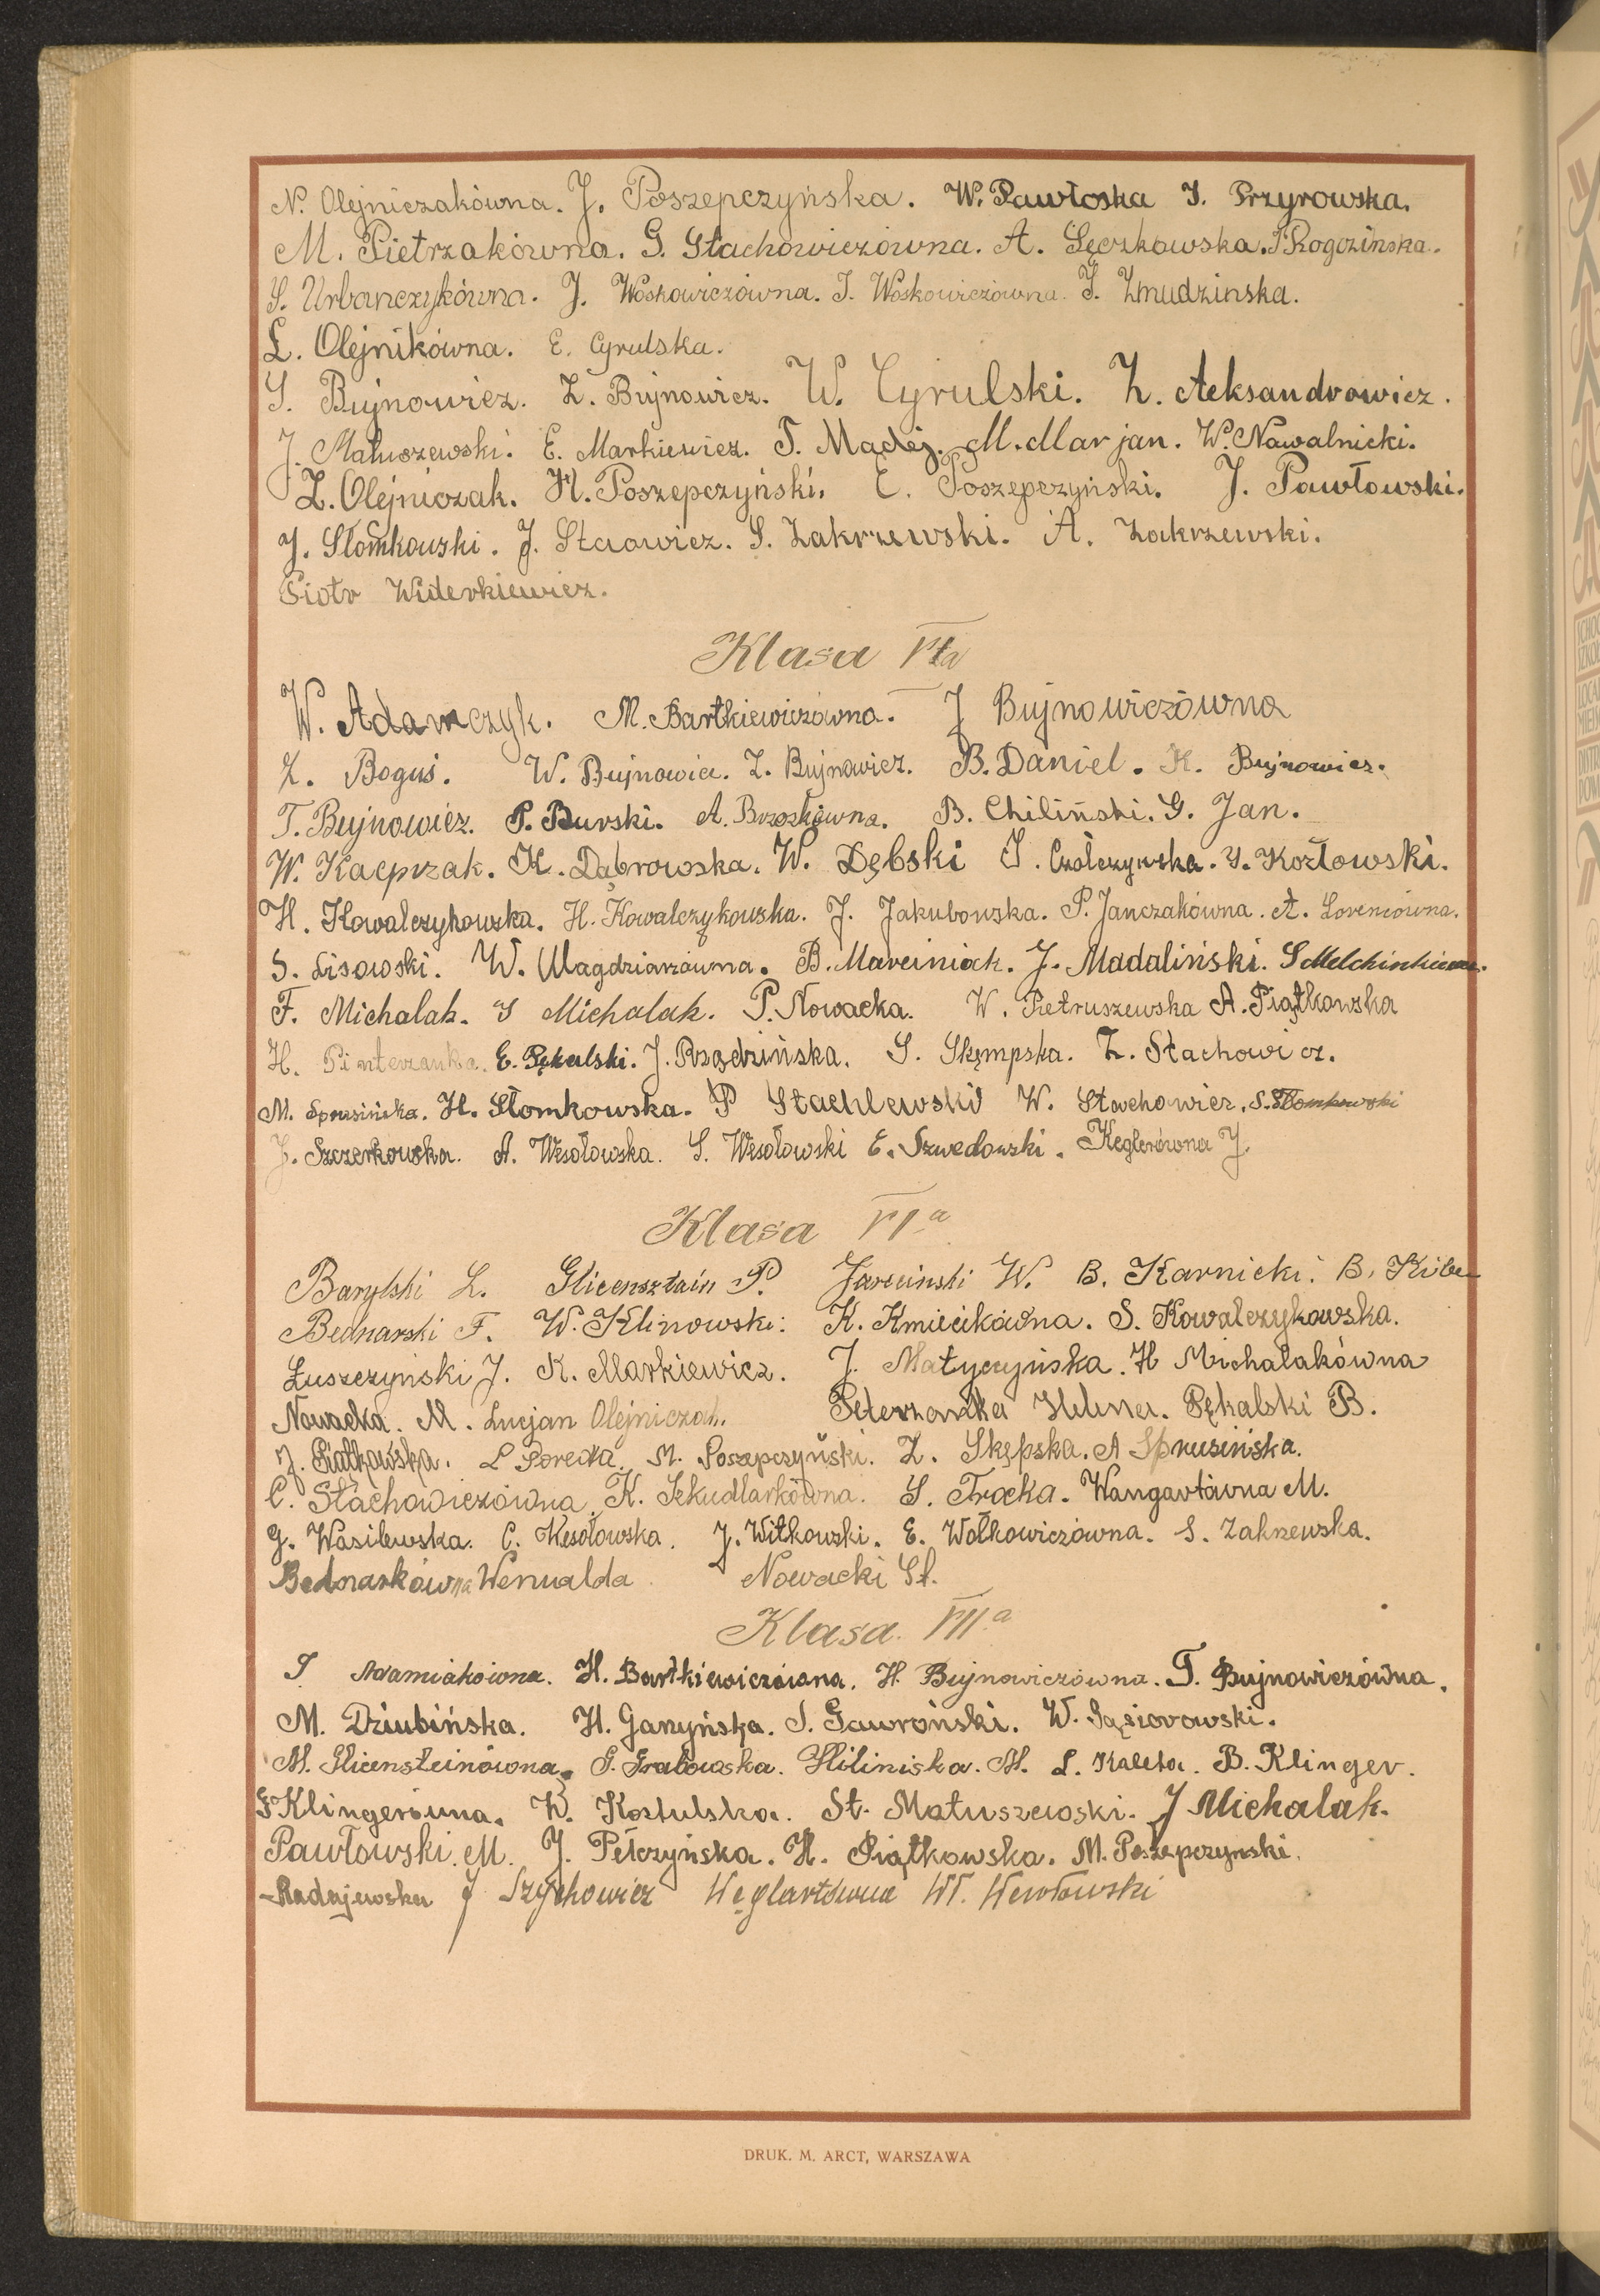 N. Olejniczakówna. J. Poszepczyńska. W. Pawłoska I. Przyrowska.
M. Pietrzakówna. G. Stachowiczówna. A. Sęczkowska. J. Rogozińska.
S. Urbanczykówna. J. Woskowiczówna. I. Woskowiczówna. S. Zmudzinska.
L. Olejnikówna. E. Cyrulska.
S. Bujnowicz. Z. Bujnowicz. W. Cyrulski. Z. Aleksandrowicz.
J. Matuszewski. E. Markiewicz. T. Madej. M. Marjan. W. Nawalnicki.
Z. Olejniczak. H. Poszepczyński. E. Poszepczyński. J. Pawłowski.
J. Słomkowski. J. Staowicz. S. Zakrzewski. A. Zakrzewski.
Piotr Widerkiewicz.
Klasa Vta
W. Adamczyk. M. Bartkiewiczówna. J Bujnowiczówna
Z. Boguś. W. Bujnowicz. Z. Bujnowicz. B. Daniel. K. Bujnowicz.
T. Bujnowicz. P. Burski. A. Brzozkówna. B. Chiliński. G. Jan.
W. Kacprzak. K. Dąbrowska. W. Dębski J. Czółczyńska. S. Kozłowski.
H. Kowalczykowska. H. Kowalczykowska. J. Jakubowska. P. Janczakówna. A. Lorencówna.
S. Lisowski. W. Magdziarzówna. B. Marciniak. J. Madaliński.
F. Michalak. S Michalak. P. Nowacka. W. Pietruszewska A. Piątkowska
H. E. Pękalski. J. Rządzińska. S. Skęmpska. Z. Stachowicz.
M. Sprusińska. H. Słomkowska. P Stachlewski W. Stachowicz. S. Słomkowski
J. Szczerkowska. A. Wesołowska. S. Wesołowski E. Szwedowski. Keglerówna J.
Klasa VIa
Barylski Z. Glicensztain P. Jarciński W. B. Karnicki. B.
Bednarski F. W. Klinowski. K. Kmiecikówna. S. Kowalczykowska.
Łuszczyński J. K. Markiewicz. J. Matyczyńska. H Michalakówna
Nowacka. M. Lucjan Olejniczak. Peterzanka Helena. Pękalski B.
J. Piątkowska. L Porecka. M. Poszepczyński. Z. Skępska. A Sprusińska.
C. Stachowiczówna. K. Szkudlarkówna. S. Trocka. Wangartówna M.
G. Wasilewska. C. Wesołowska. J. Witkowski. E. Wołkowiczówna. S. Zakrzewska.
Bednarkówna Wenualda. Nowacki St.
Klasa. VIIa
S Adamiakówna. H. Bartkiewiczówna. H. Bujnowiczówna. T. Bujnowiczówna.
M. Dziubińska. H. Garzyńska. S. Gawroński. W. Gąsiorowski.
M. Glicensteinówna. G. Grabowska. Hilińska. M. L. Kaleta. B. Klinger.
G Klingerówna. W. Kostulska. St. Matuszewski. J Michalak.
Pawłowski. M. J. Pełczyńska. H. Piątkowska. M. Poszepczynski.
Radajewska J Szychowicz Węglartówna Wł. Wewłowski
DRUK. M. ARCT, WARSZAWA